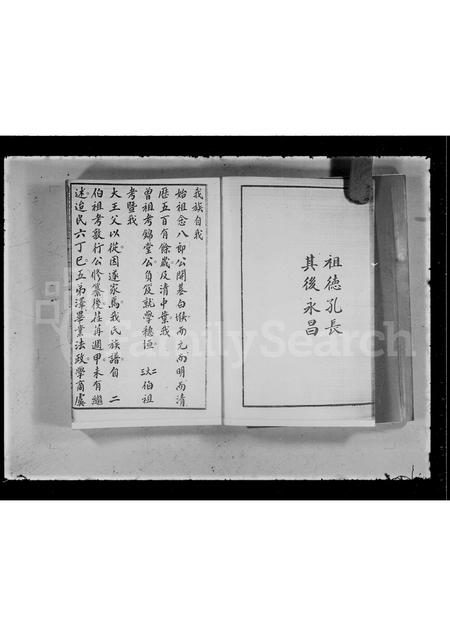 祖德孔長
其後永昌
我族自我
始祖念八郎公開基白堠而元而明而清
歷五百有餘歲及清中葉我
曾祖考錦堂公負笈就學穗垣 大二三伯祖
考暨我
大王父以從因遂家焉我氏族譜自 二
伯祖考敦行公修纂後荏苒週甲未有繼
述迨民六丁巳五弟澤畢業法政學商虞
FamilySearch